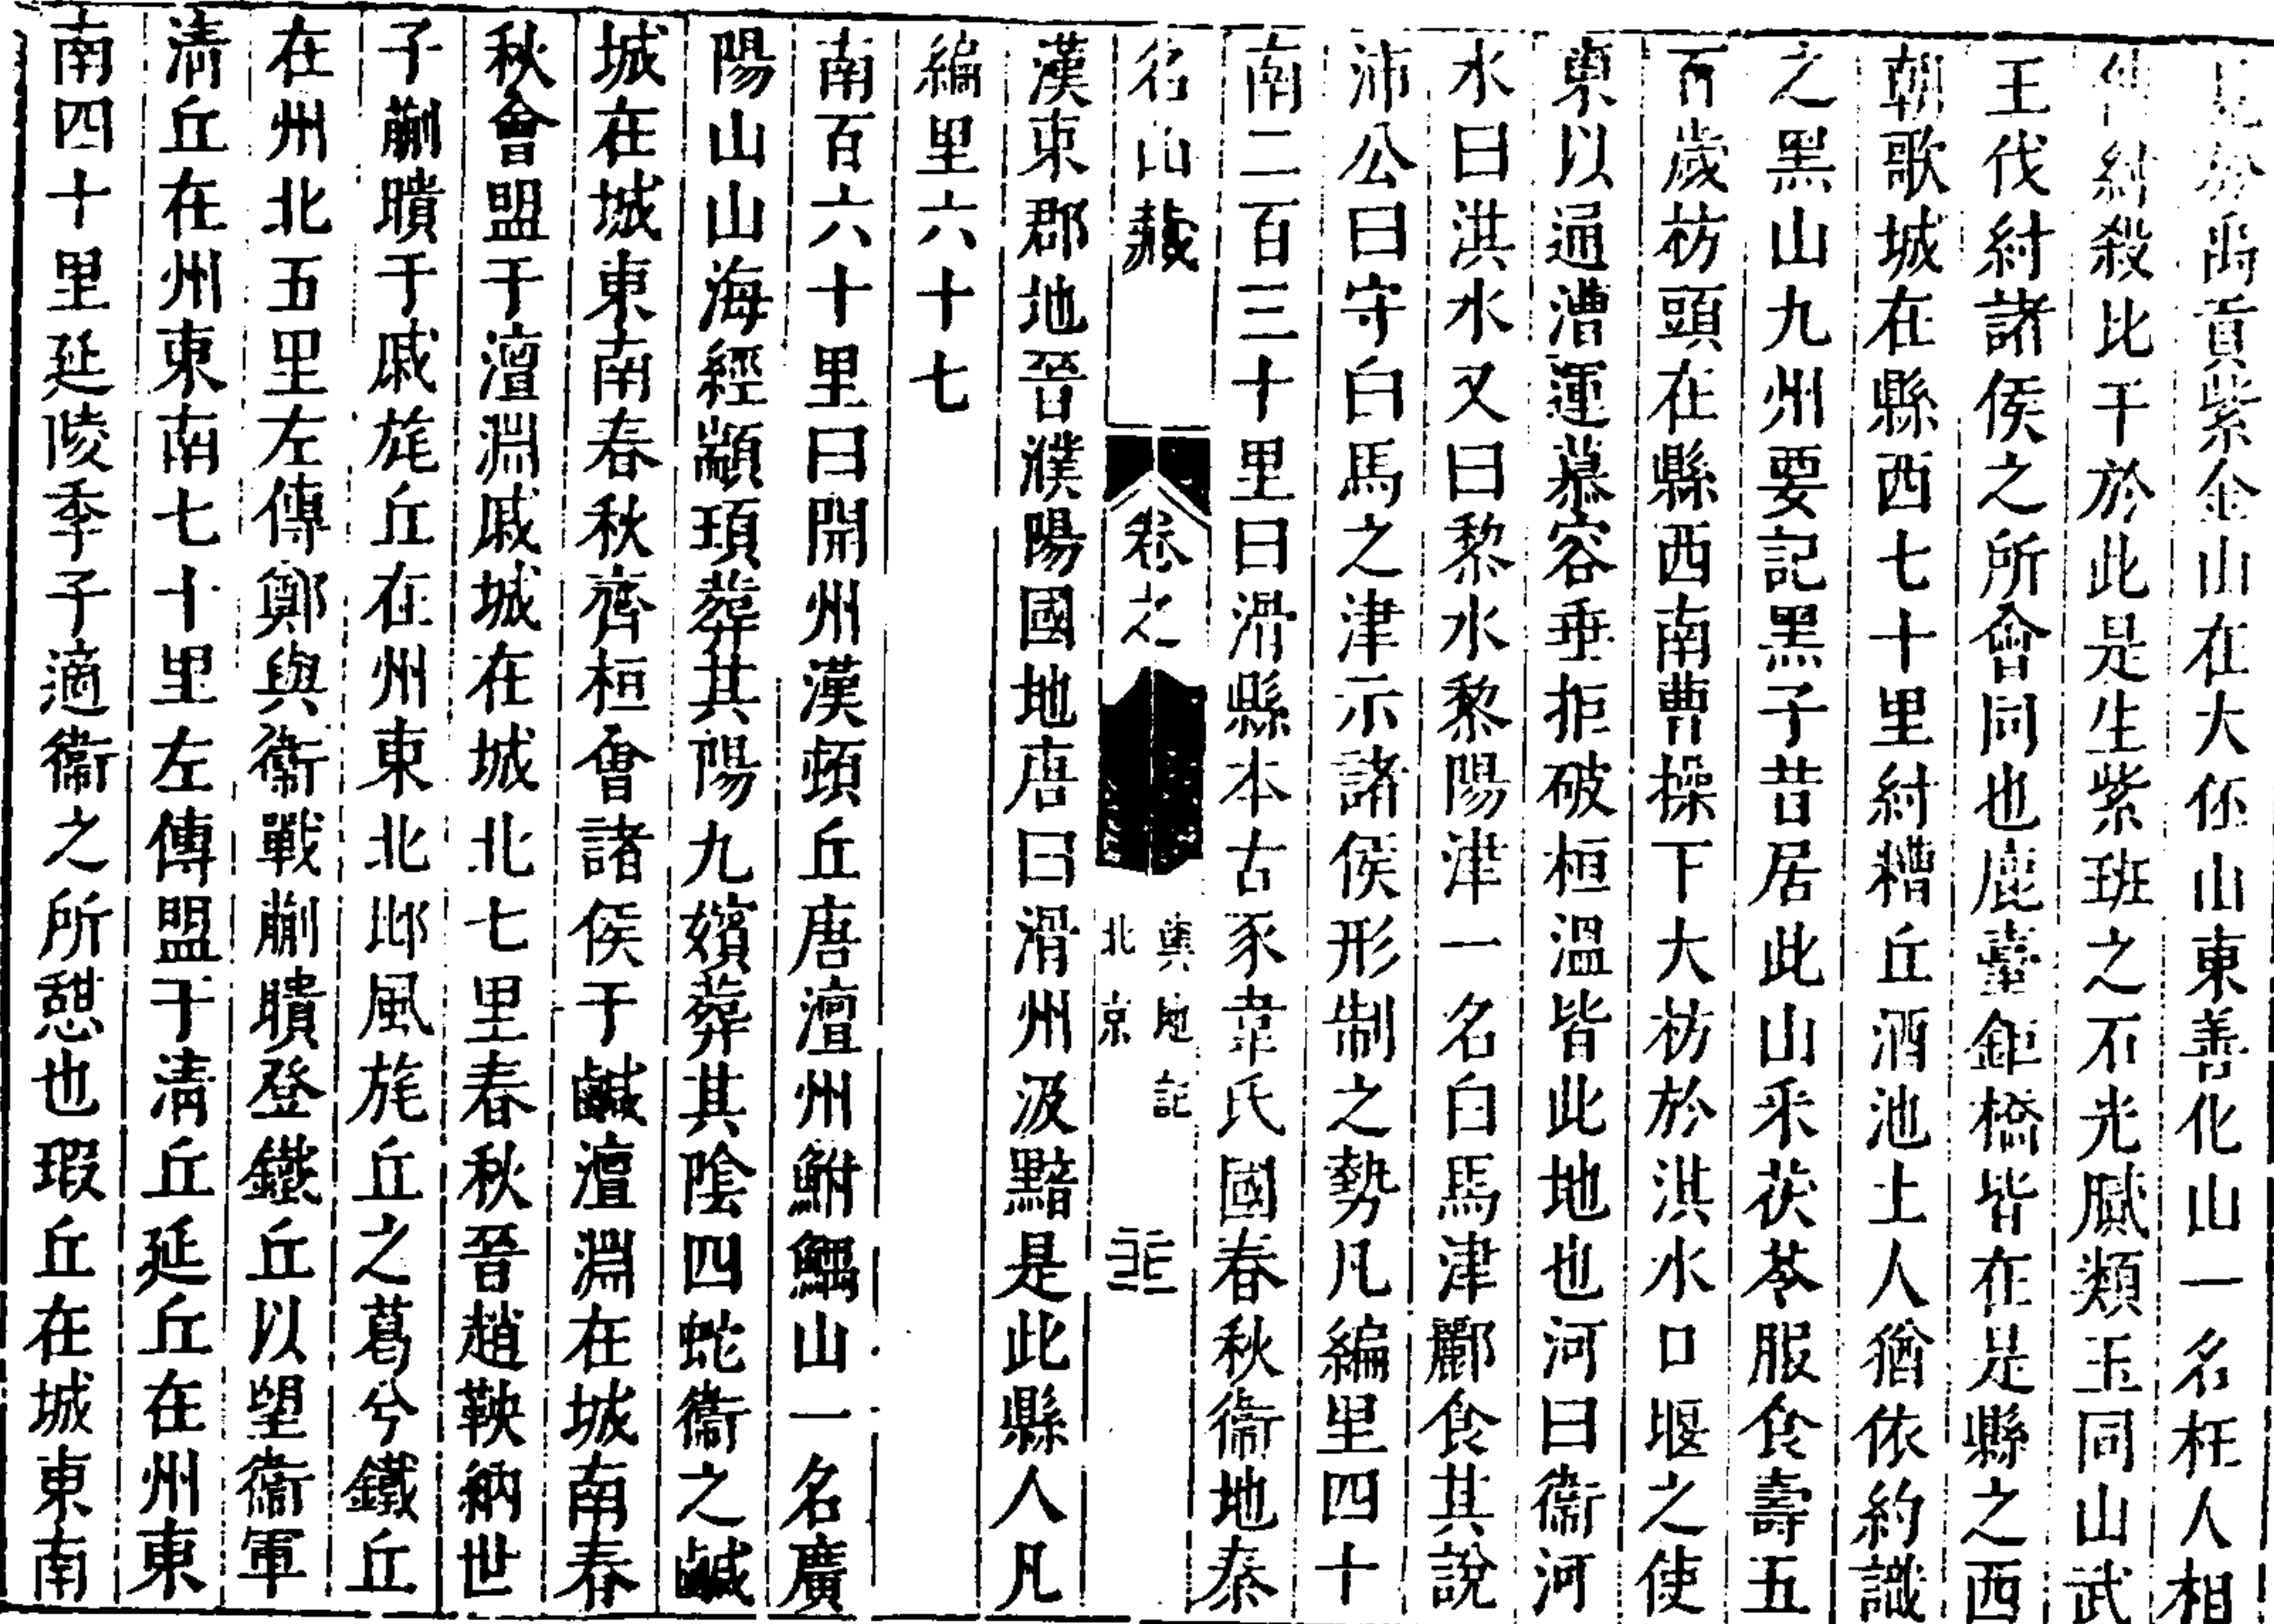 禹貢紫金山在大伾山東善化山一名枉人相
紂殺比干於此是生紫班之石光膩類玉同山武
王伐紂諸侯之所會同也鹿臺鉅橋皆在是縣之西
朝歌城在縣西七十里紂糟丘酒池土人猶依約識
之黑山九州要記黑子昔居此山采茯苓服食壽五
百歲枋頭在縣西南曹操下大枋於淇水口堰之使
東以通漕運慕容垂拒破桓溫皆此地也河曰衞河
水曰洪水又曰黎水黎陽津一名白馬津酈食其說
沛公曰守白馬之津示諸侯形制之勢凡編里四十
南二百三十里曰滑縣本古豕韋氏國春秋衞地秦
名山藏 卷之 輿地記 北京
漢東郡地晉濮陽國地唐曰滑州汲黯是此縣人凡
編里六十七
南百六十里曰開州漢頓丘唐澶州鮒鰅山一名廣
陽山山海經顓頊葬其陽九嬪葬其陰四蛇衞之鹹
城在城東南春秋齊桓會諸侯于鹹澶淵在城南春
秋會盟于澶淵戚城在城北七里春秋晉趙鞅納世
子蒯聵于戚旄丘在州東北邶風旄丘之葛兮鐵丘
在州北五里左傳鄭與衞戰蒯聵登鐵丘以望衞軍
清丘在州東南七十里左傳盟于清丘延丘在州東
南四十里延陵季子適衞之所憩也瑕丘在城東南